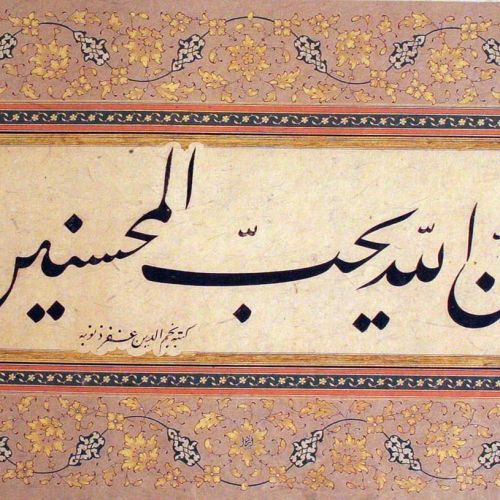 ن الله يحبّ المحسنين
كتبه نجم الدين غفر ذنوبه